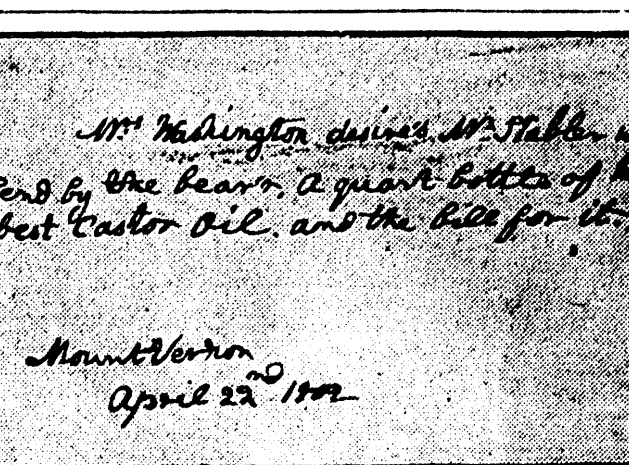 Mrs Washington desires Mr Stabler
send by the bearr, a quart bottle of
best Castor Oil, and the bill for it.
Mount Vernon
April 22nd 1802